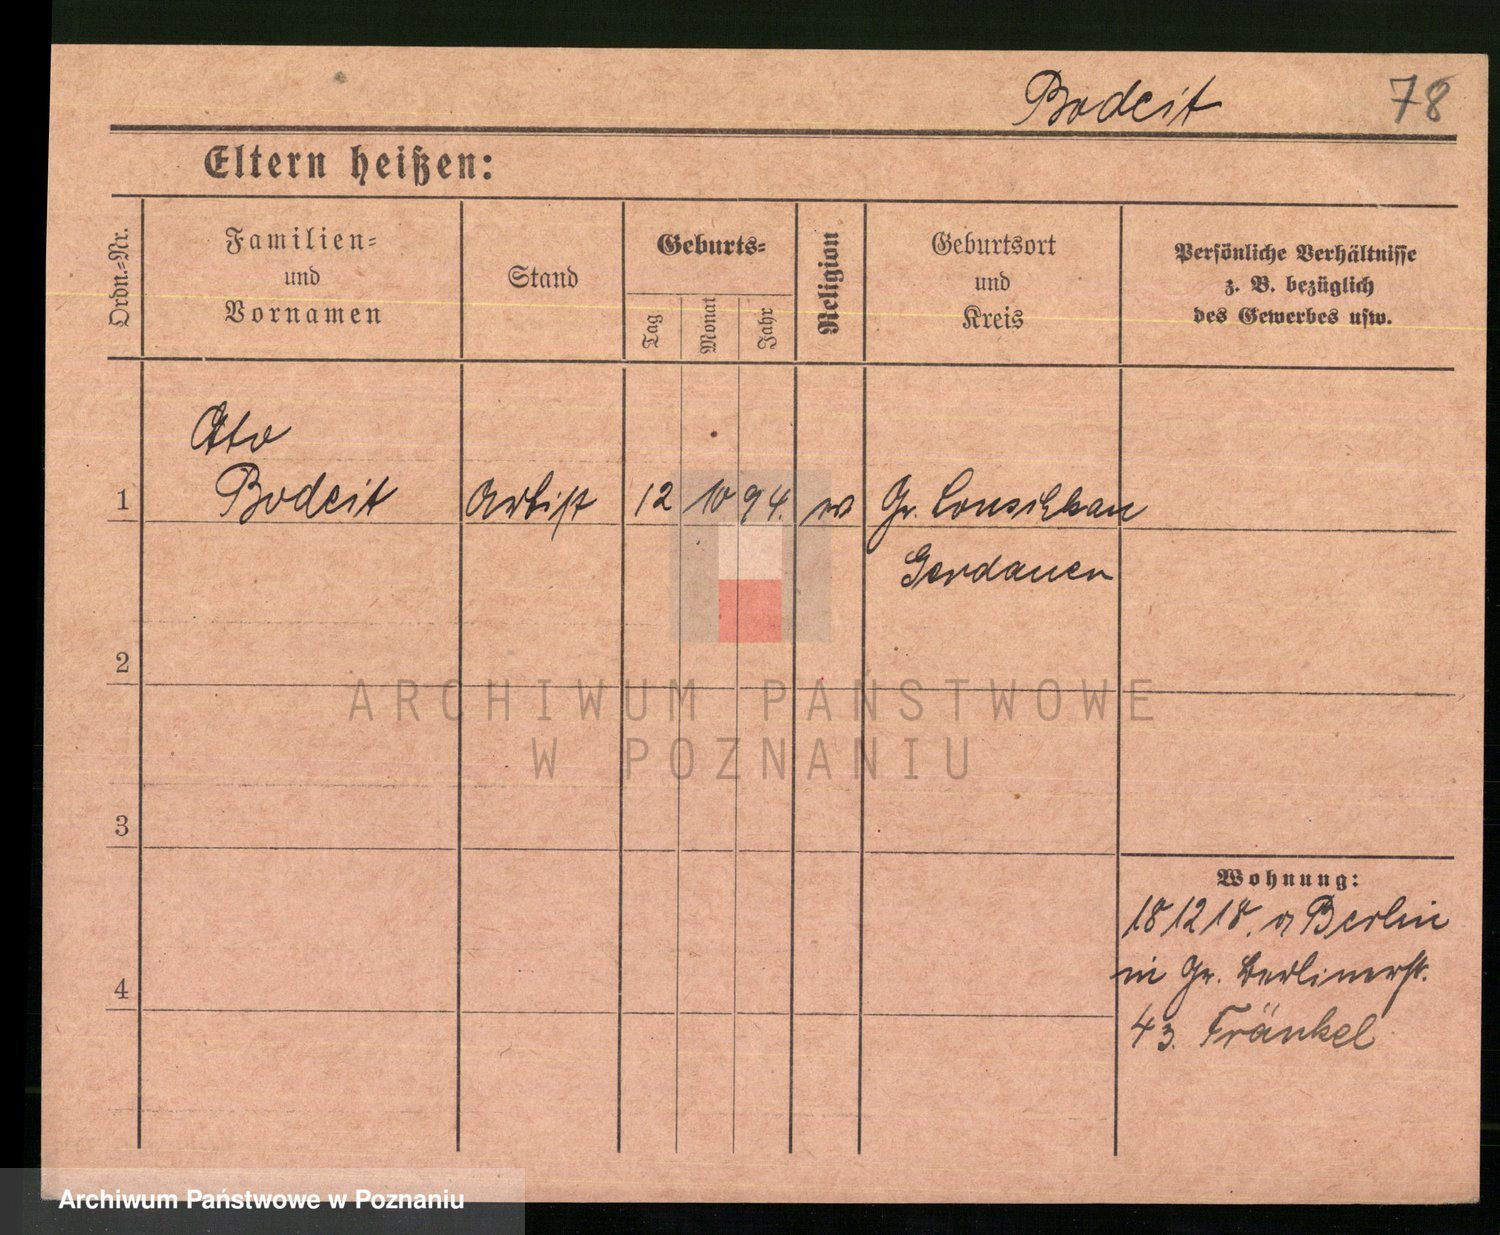 Bodeit 78
Eltern heißen:
Ordn.-Nr.
Familien-
und
Vornamen
Stand
Geburts-
Tag
Monat
Jahr
Religion
Geburtsort
und
Kreis
Persönliche Verhältnisse
z. B. bezüglich
des Gewerbes usw.
Otto
1 Bodeit Artist 12 10 94. Gr.
Gerdauen
2
ARCHIWUM PAŃSTWOWE
W POZNANIU
3
Wohnung:
18 12 18. Berlin
in Gr. Berlinerstr.
4
43. Fränkel
Archiwum Państwowe w Poznaniu